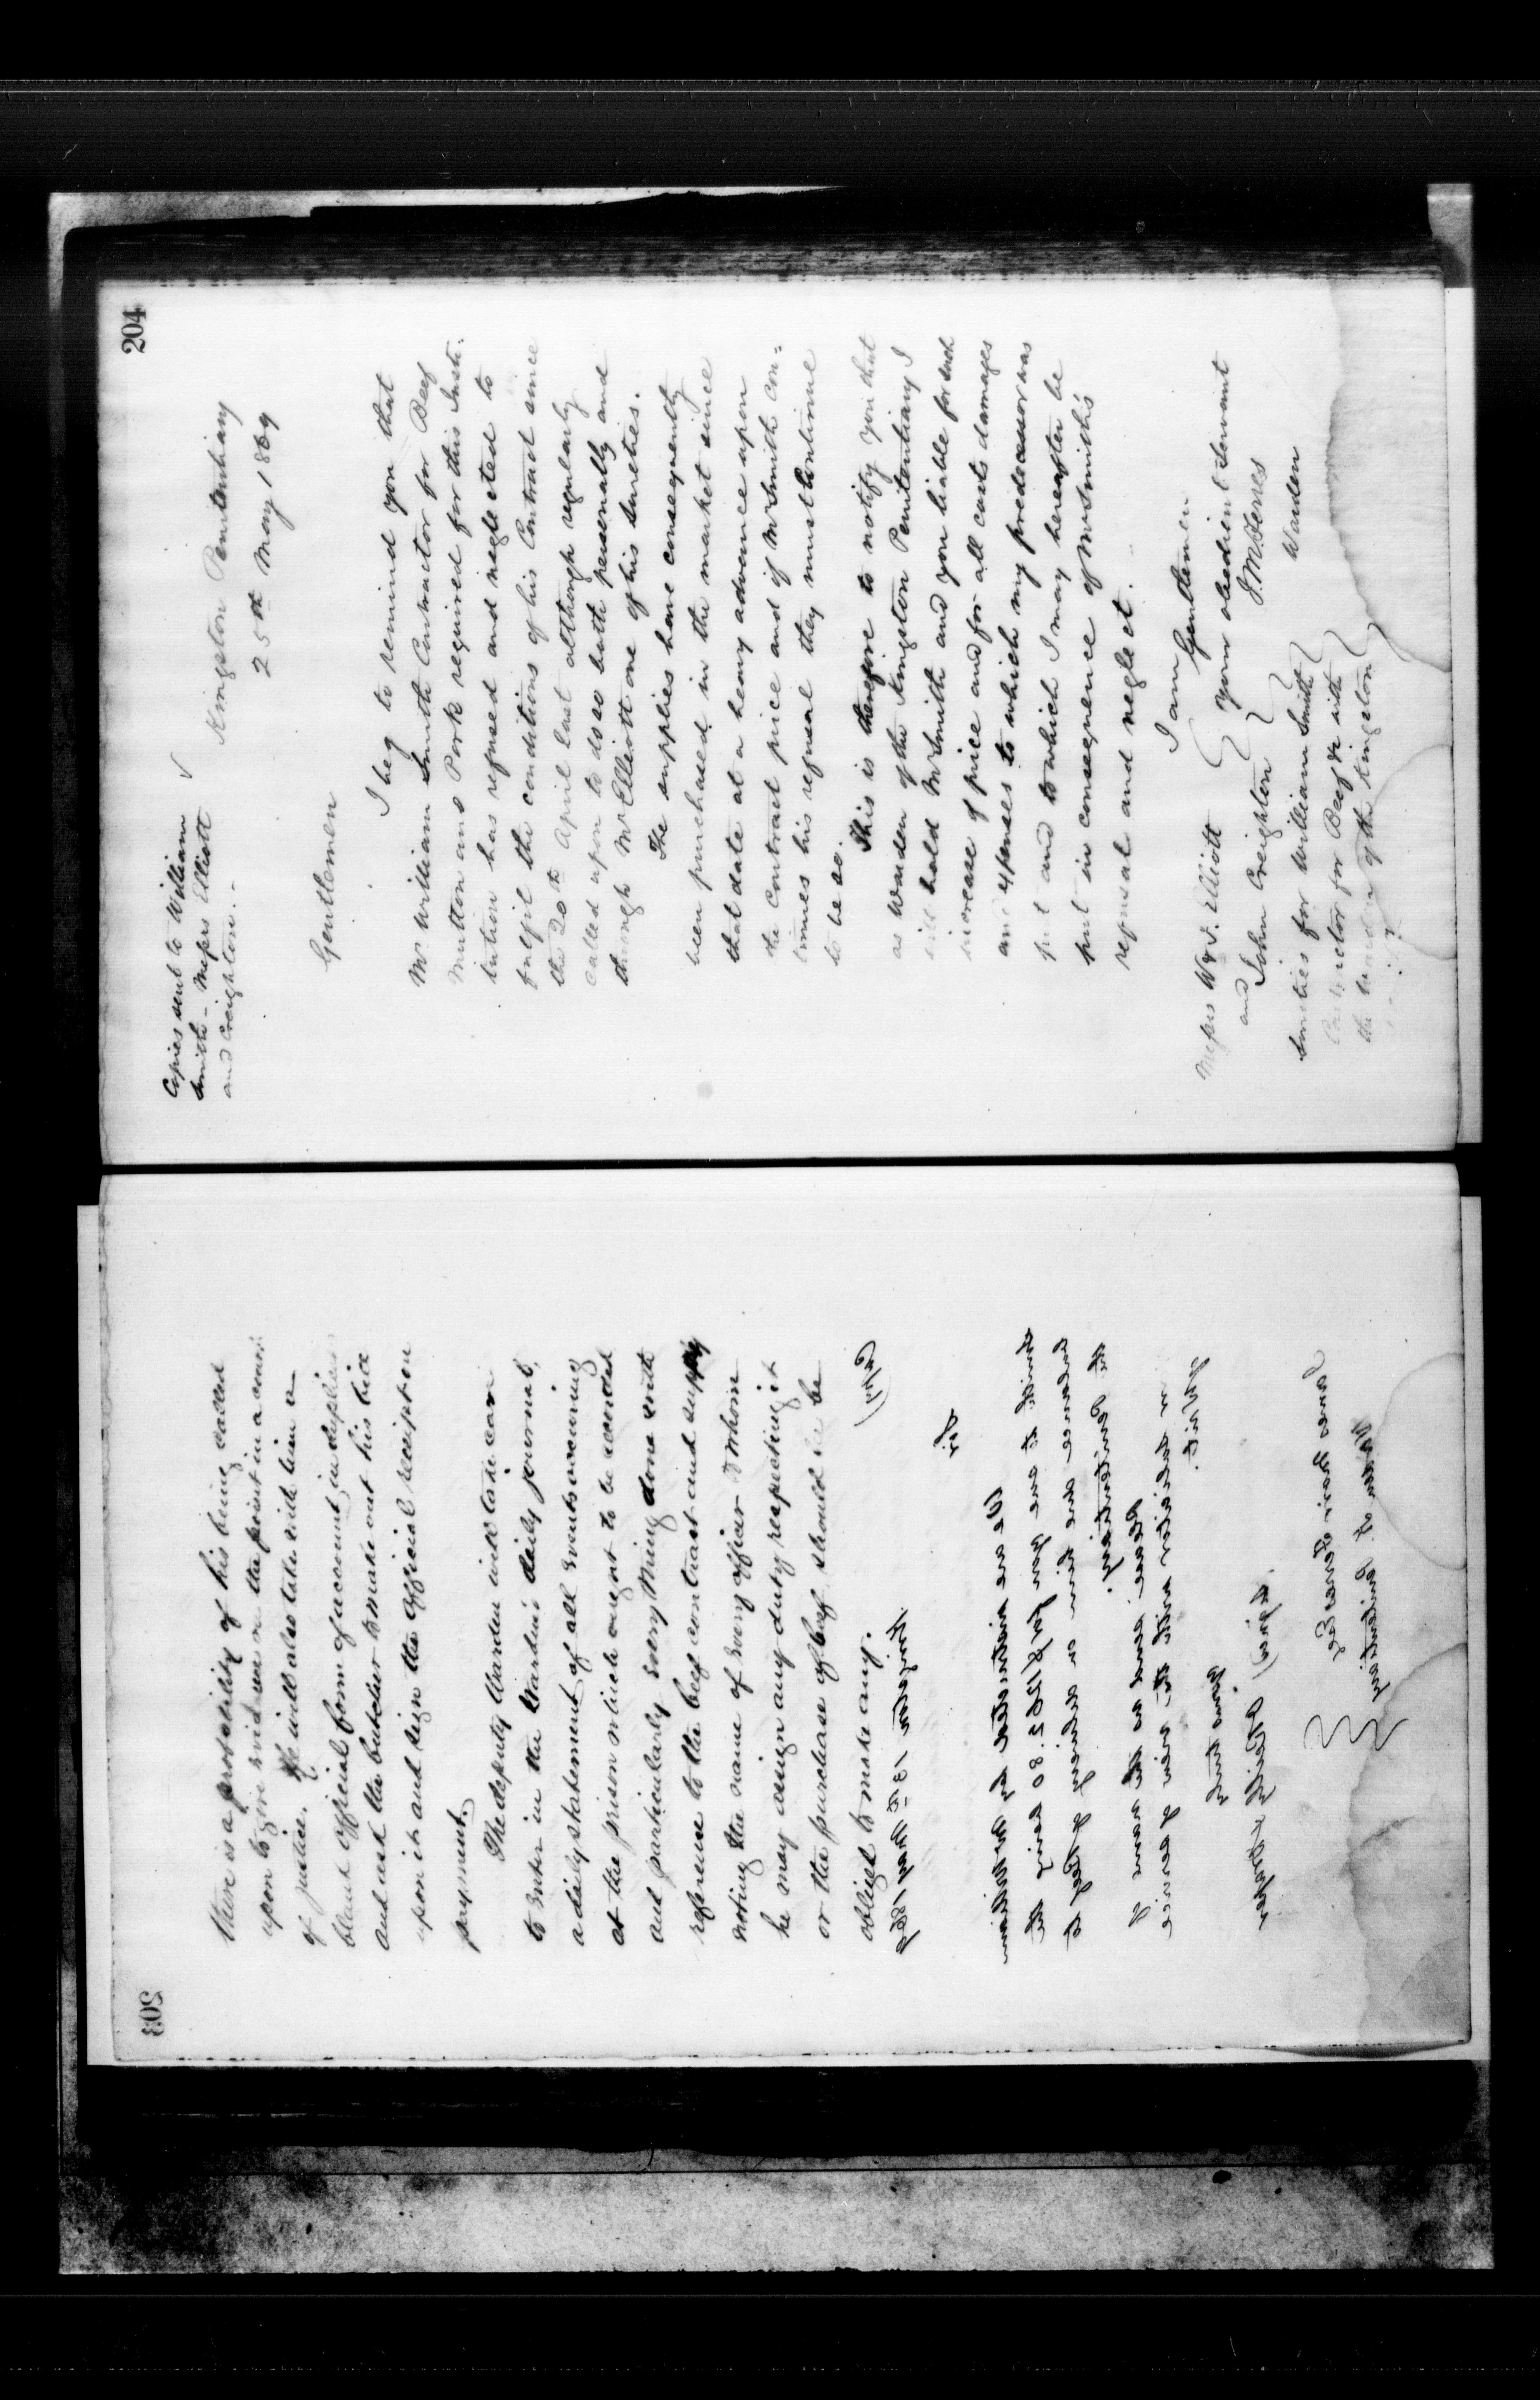 203
there is a probability of his being called
upon to give evidence on the point in a court
of justice. He will also take with him a
blank official form of account in duplicate
and ask the butcher to make out his bill
upon it and sign the official receipt on
payment.
The deputy Warden will take care
to enter in the Warden's daily journal,
a daily statement of all events occurring
at the prison which ought to be recorded
and particularly every thing done with
reference to the beef contract and supply
noting the name of every officer to whom
he may assign any duty respecting it
or the purchase of beef should he be
obliged to make any.
(Copy)
Kingston 13th May 1869
Sir
We are instructed by Mr William
Smith to sue you for $1262.80 being the
balance due him on delivery of Beef to
the Penitentiary.
Please send us the name of
a solicitor with the view of service
of Writ.
Yours truly
(Signed)
James Moir Ferres Esq
Warden Penitentiary
204
Copies sent to William
Smith - Messrs Elliott
and Creighton. -
Kingston Penitentiary
25th May 1869
Gentlemen
I beg to remind you that
Mr. William Smith Contractor for Beef
Mutton and Pork required for this Insti-
tution has refused and neglected to
fulfil the conditions of his Contract since
the 20th April last although regularly
called upon to do so both personally and
through Mr Elliott one of his sureties.
The supplies have consequently
been purchased in the market since
that date at a heavy advance upon
the contract price and if Mr Smith con=
tinues his refusal they must continue
to be so.
This is therefore to notify you that
as Warden of the Kingston Penitentiary I
will hold Mr Smith and you liable for such
increase of price and for all costs damages
and expenses to which my predecessor was
put and to which I may hereafter be
put in consequence of Mr Smith's
refusal and neglect.
I am
Gentlemen
your obedient Servant
J. M. Ferres
Warden
Messrs W & J. Elliott
and John Creighton
Sureties for William Smith
Contractor for Beef &c with
the Warden of the Kingston